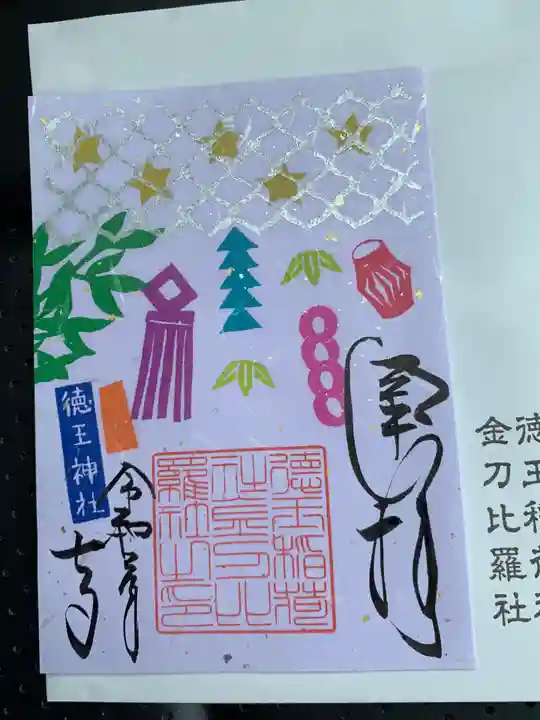 奉拝
徳王稲荷
社金刀比
羅社之印
令和
徳王神社
徳王稲荷社
金刀比羅社